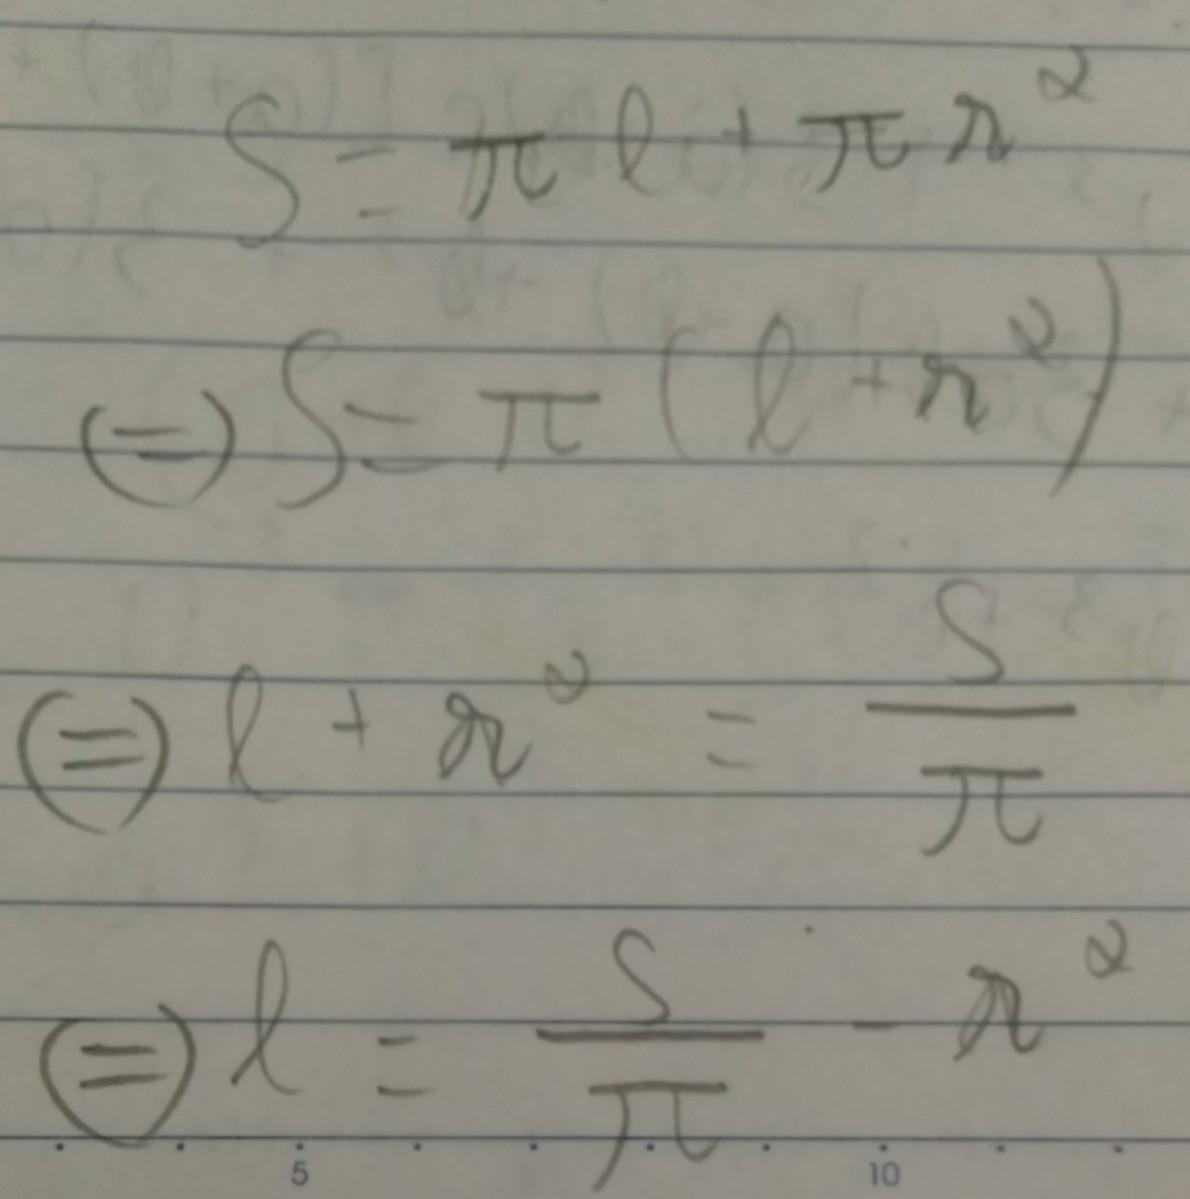 S = πl + πr²
(=) S = π(l + r²)
(=) l + r² = S/π
(=) l = S/π - r²
5 10